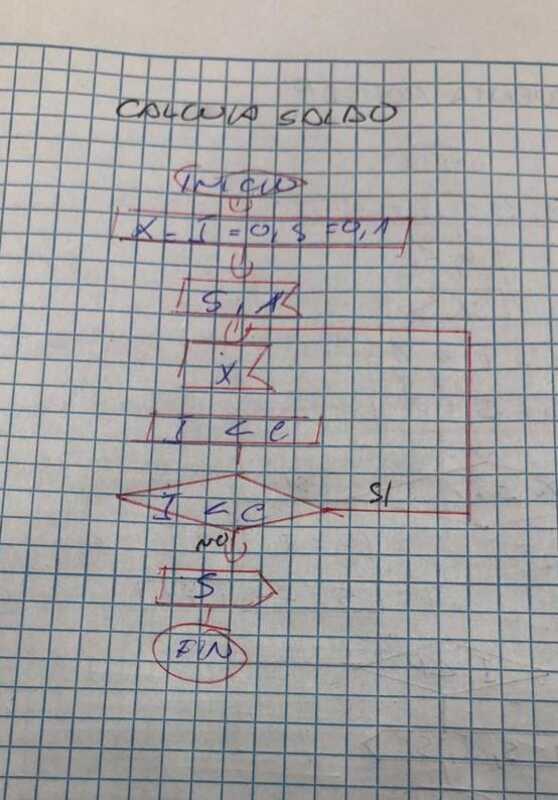 CALCULA SALDO
INICIO
X = I = 0, S = 0, 1
S, X
X
I < C
I < C
SI
NO
S
FIN